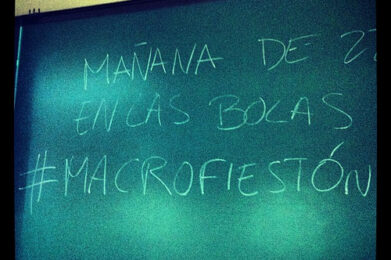 MAÑANA DE 22
EN LAS BOCAS
#MACROFIESTÓN